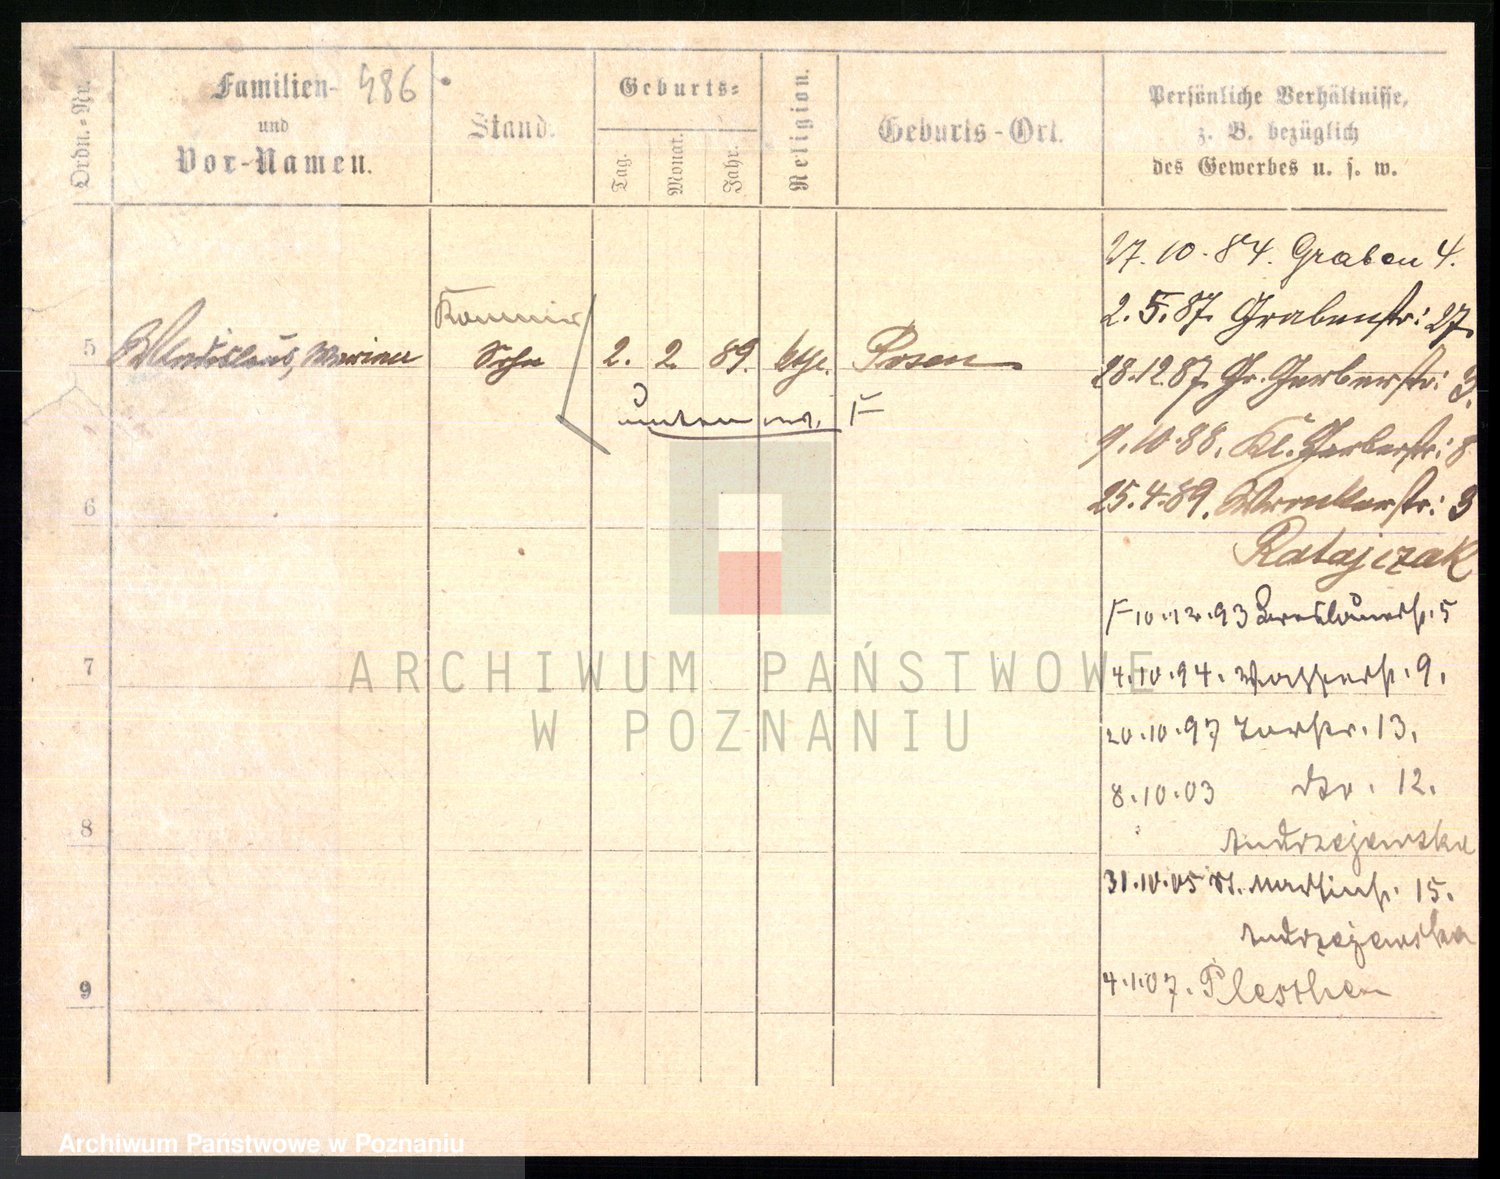 Ordn.-Nr.
Familien- 486
und
Vor-Namen.
Stand.
Geburts-
Tag.
Monat.
Jahr.
Religion.
Geburts-Ort.
Persönliche Verhältnisse,
z. B. bezüglich
des Gewerbes u. s. w.
27.10.84. Graben 4.
2.5.87. Grabenstr: 27.
5 Wladislaus, Marian Sohn 2. 2. 89. kth. Posen
28.12.87. Gr. Gerberstr: 3.
unten F
9.10.88. Kl. Gerberstr: 8
6
25.4.89. Wronkerstr: 3
Ratajczak
F 10.12.93 Breslauerstr. 5
7
4.10.94. Wasserstr. 9.
20.10.97 Torstr. 13.
8.10.03 dto. 12.
8
Andrzejewska
31.10.05 St. Martinstr. 15.
Andrzejewska
9
4.1.07. Pleschen
ARCHIWUM PAŃSTWOWE
W POZNANIU
Archiwum Państwowe w Poznaniu